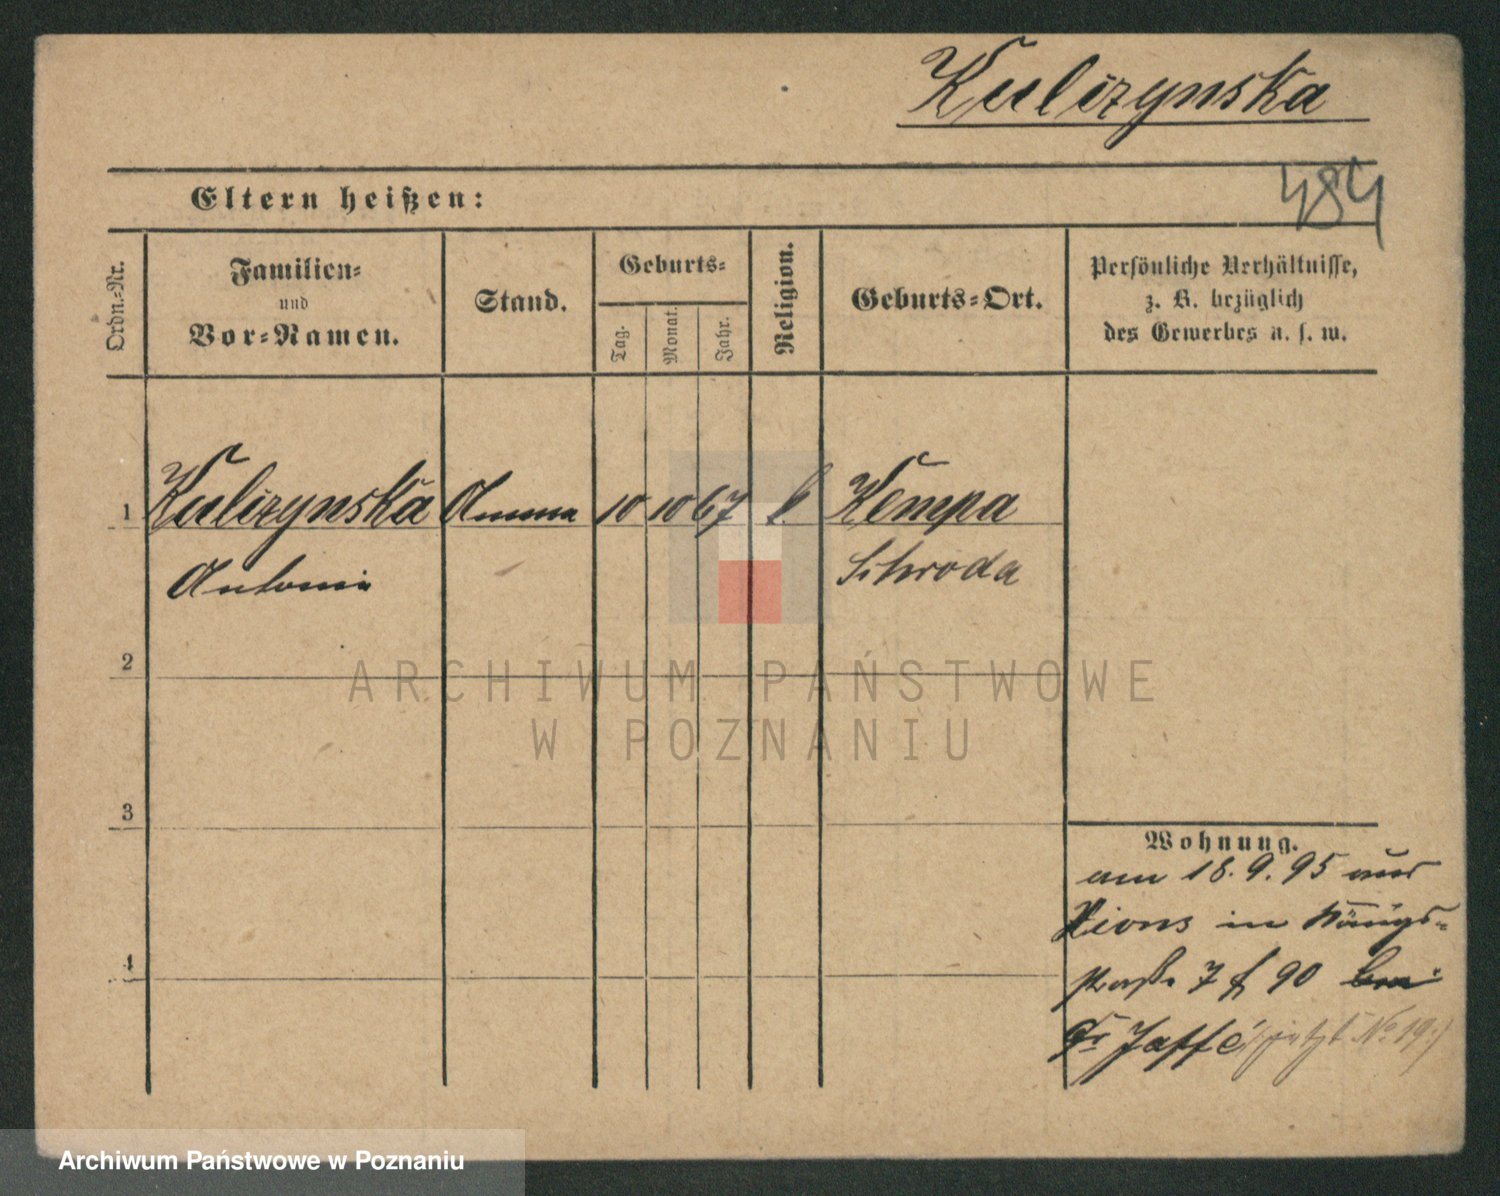 Kulizynska
484
Eltern heißen:
Ordn.-Nr.
Familien-
und
Vor-Namen.
Stand.
Geburts-
Tag.
Monat.
Jahr.
Religion.
Geburts-Ort.
Persönliche Verhältnisse,
z. B. bezüglich
des Gewerbes u. s. w.
1 Kulizynska Amme 10 10 67 k. Kempa
Antonie Schroda
2
ARCHIWUM PAŃSTWOWE
W POZNANIU
3
Wohnung.
am 18. 9. 95 aus
Xions in Königs-
straße 7 f 90 bei
Dr Jaffé (jetzt No 19.)
4
Archiwum Państwowe w Poznaniu